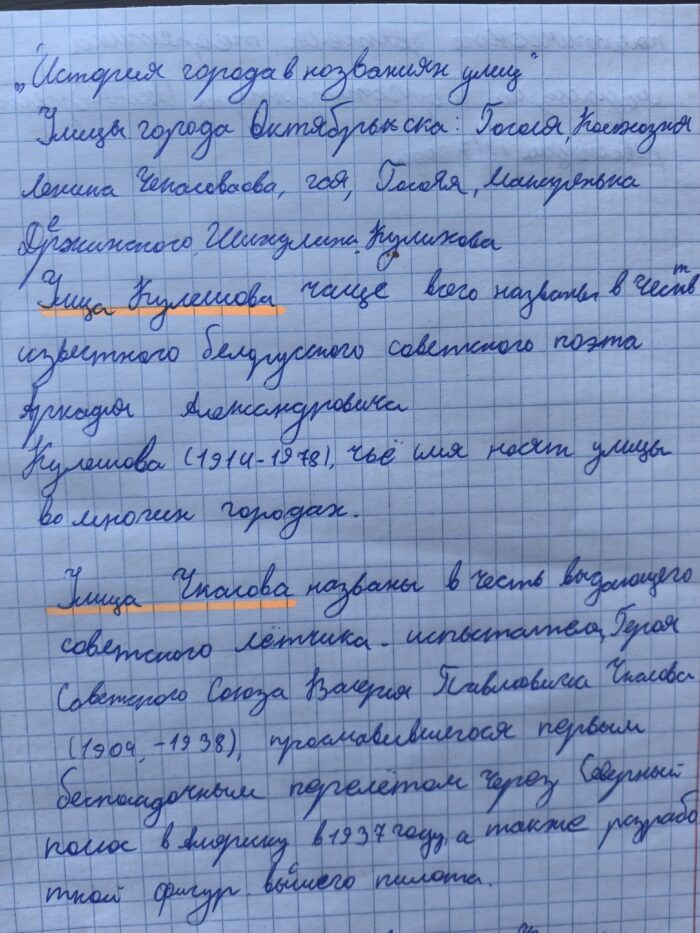 „История города в нозваниях улиц"
Улицы города Октябрьска: Гоголя,
Ленина гоя, Гоголя,
Дзержинского
Улица Кулешова чаще всего названы в честь
известного белорусского советского поэта
Аркадия Александровича
Кулешова (1914-1978), чьё имя носят улицы
во многих городах.
Улица Чкалова названы в честь выдающего
советского лётчика - испытателя, Героя
Советского Союза Валерия Павловича Чкалова
(1904,-1938), прославившегося первым
беспосадочным перелётом через Северный
полюс в Америку в 1937 году, а также разрабо
ткой фигур высшего пилота.